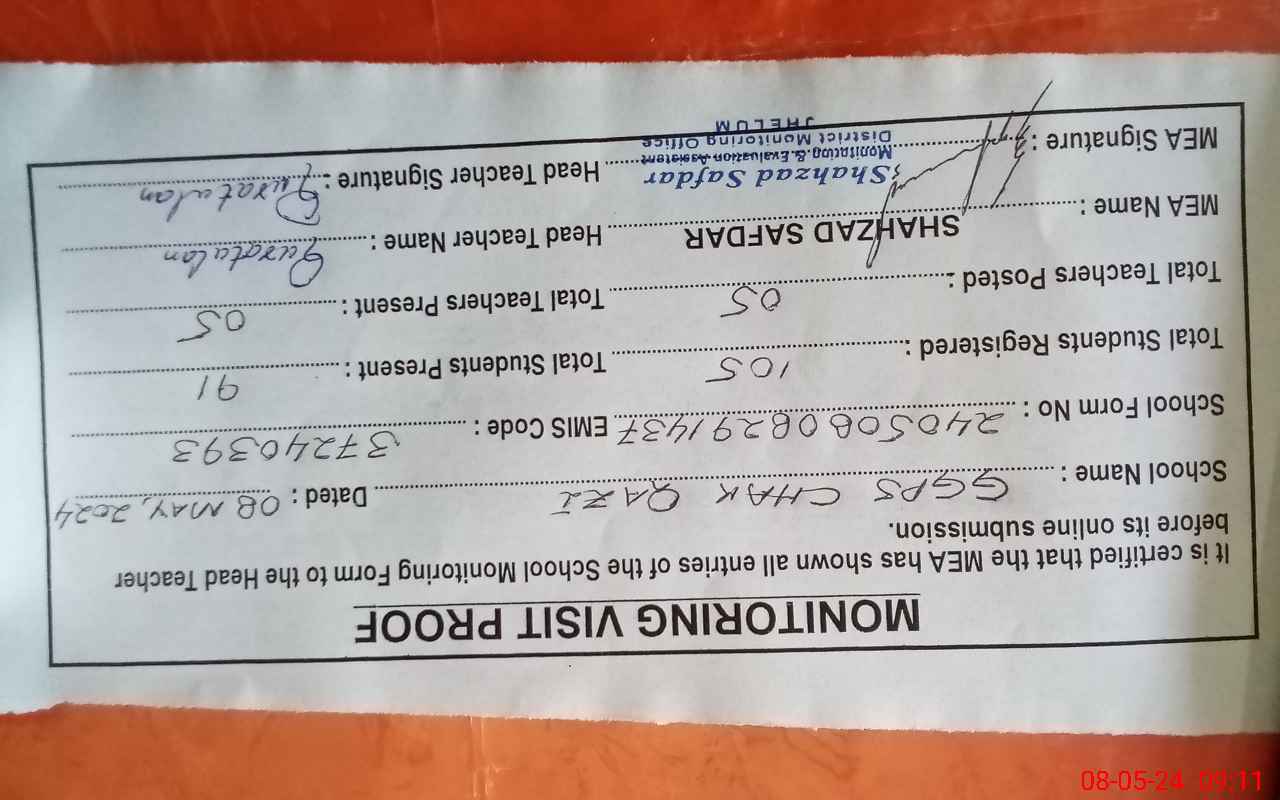 MONITORING VISIT PROOF
It is certified that the MEA has shown all entries of the School Monitoring Form to the Head Teacher
before its online submission.
School Name : GGPS CHAK QAZI Dated : 08 MAY, 2024
School Form No : 24050808291437 EMIS Code : 37240393
Total Students Registered : 105 Total Students Present : 91
Total Teachers Posted : 05 Total Teachers Present : 05
MEA Name : SHAHZAD SAFDAR Head Teacher Name : Quratulan
MEA Signature : Head Teacher Signature : Quratulan
Shahzad Safdar
Monitoring & Evaluation Assistent
District Monitoring Office
JHELUM
08-05-24 09:11